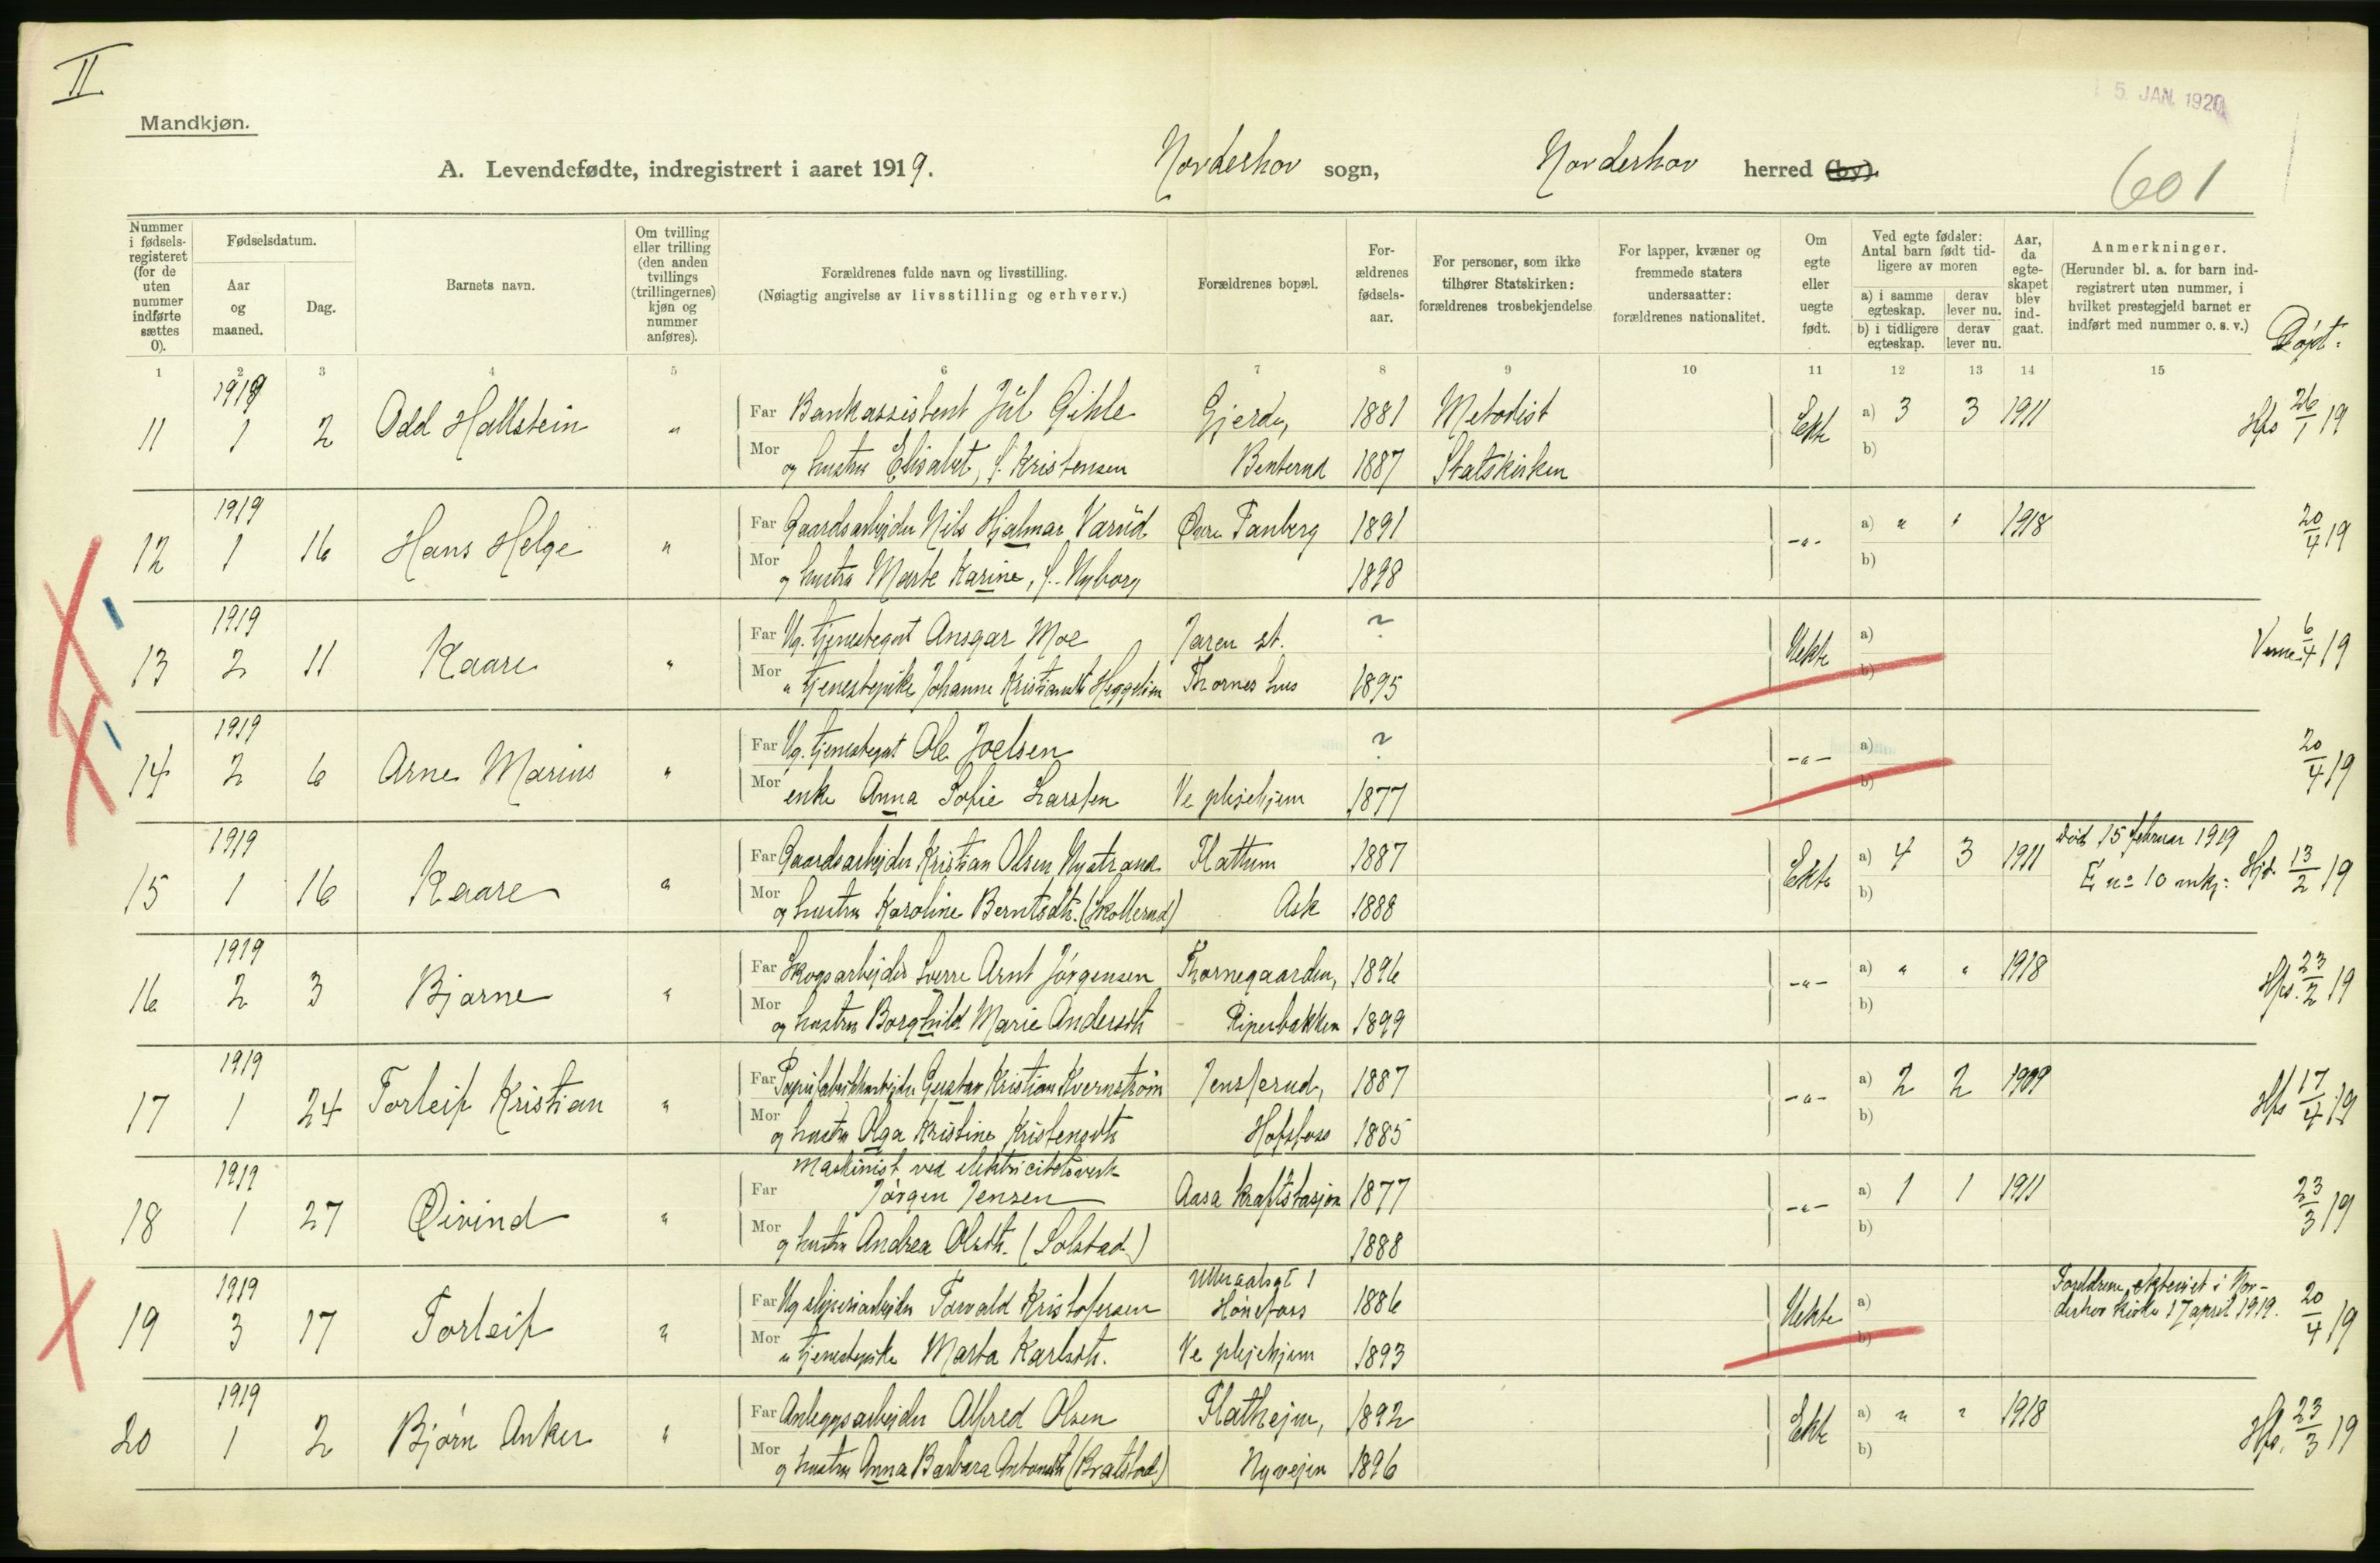 II
5. JAN. 1920
Mandkjøn.
A. Levendefødte, indregistrert i aaret 1919. Norderhov sogn, Norderhov herred (by).
601
Nummer i fødsels-registeret (for de uten nummer indførte sættes 0).
Fødselsdatum.
Aar og maaned.
Dag.
Barnets navn.
Om tvilling eller trilling (den anden tvillings (trillingernes) kjøn og nummer anføres).
Forældrenes fulde navn og livsstilling.
(Nøiagtig angivelse av livsstilling og erhverv.)
Forældrenes bopæl.
For-ældrenes fødsels-aar.
For personer, som ikke tilhører Statskirken: forældrenes trosbekjendelse.
For lapper, kvæner og fremmede staters undersaatter: forældrenes nationalitet.
Om egte eller uegte født.
Ved egte fødsler: Antal barn født tid-ligere av moren
a) i samme egteskap.
derav lever nu.
b) i tidligere egteskap.
derav lever nu.
Aar, da egte-skapet blev ind-gaat.
Anmerkninger.
(Herunder bl. a. for barn ind-registrert uten nummer, i hvilket prestegjeld barnet er indført med nummer o. s. v.)
Døpt:
1 2 3 4 5 6 7 8 9 10 11 12 13 14 15
1919
11 1 2 Odd Hallstein " Far Bankassistent Jul Gihle Gjerde, 1881 Metodist Ekte a) 3 3 1911 Hfs 26/1 19
Mor og hustru Elisabet, f. Kristensen Benterud 1887 Statskirken b)
1919
12 1 16 Hans Helge " Far Gaardsarbejder Nils Hjalmar Varud Øvre Tanberg 1891 -"- a) " " 1918 20/4 19
Mor og hustru Marte Karine, f. Nyborg 1898 b)
1919
13 2 11 Kaare " Far Ug. tjenestegut Ansgar Moe Jaren st. ? Uekte a) 6/4 19
Mor " tjenestepike Johanne Kristiansdt Heggelien Thornes hus 1895 b)
1919
14 2 6 Arne Marius " Far Ug. tjenestegut Ole Joelsen ? -"- a) 20/4 19
Mor enke Anna Sofie Larssen Ve plejehjem 1877 b)
1919
15 1 16 Kaare " Far Gaardsarbejder Kristian Olsen Nystrand Flattum 1887 Ekte a) 4 3 1911 Død 15 februar 1919 Hjd. 13/2 19
Mor og hustru Karoline Berntsdt. (Skollerud) Ask 1888 b) E no 10 mkj:
1919
16 2 3 Bjarne " Far Skogsarbejder Sverre Arnt Jørgensen Thornegaarden, 1896 -"- a) " " 1918 Hfs. 23/2 19
Mor og hustru Borghild Marie Andersdt Ripenbakken 1899 b)
1919
17 1 24 Torleif Kristian " Far Papirfabrikkarbejder Gustav Kristian Kvernstrøm Jensserud, 1887 -"- a) 2 2 1909 Hfs 17/4 19
Mor og hustru Olga Kristine Kristensdt Hofsfoss 1885 b)
1919
Maskinist ved elektricitetsverk
18 1 27 Øivind " Far Jørgen Jensen Aasa kraftstasjon 1877 -"- a) 1 1 1911 23/3 19
Mor og hustru Andrea Olsdt. (Solstad) 1888 b)
1919 Ulleraalsgt 1
19 3 17 Torleif " Far Ug sliperiarbejder Torvald Kristofersen Hønefoss 1886 Uekte a) Foreldrene ekteviet i Nor-
derhov kirke 17 april 1919. 20/4 19
Mor " tjenestepike Marta Karlsdt. Ve plejehjem 1893 b)
1919
20 1 2 Bjørn Anker " Far Anleggsarbejder Alfred Olsen Flathejm, 1892 Ekte a) " " 1918 Hfs. 23/3 19
Mor og hustru Anna Barbara Antonsdt (Bratstad) Nyvejen 1896 b)